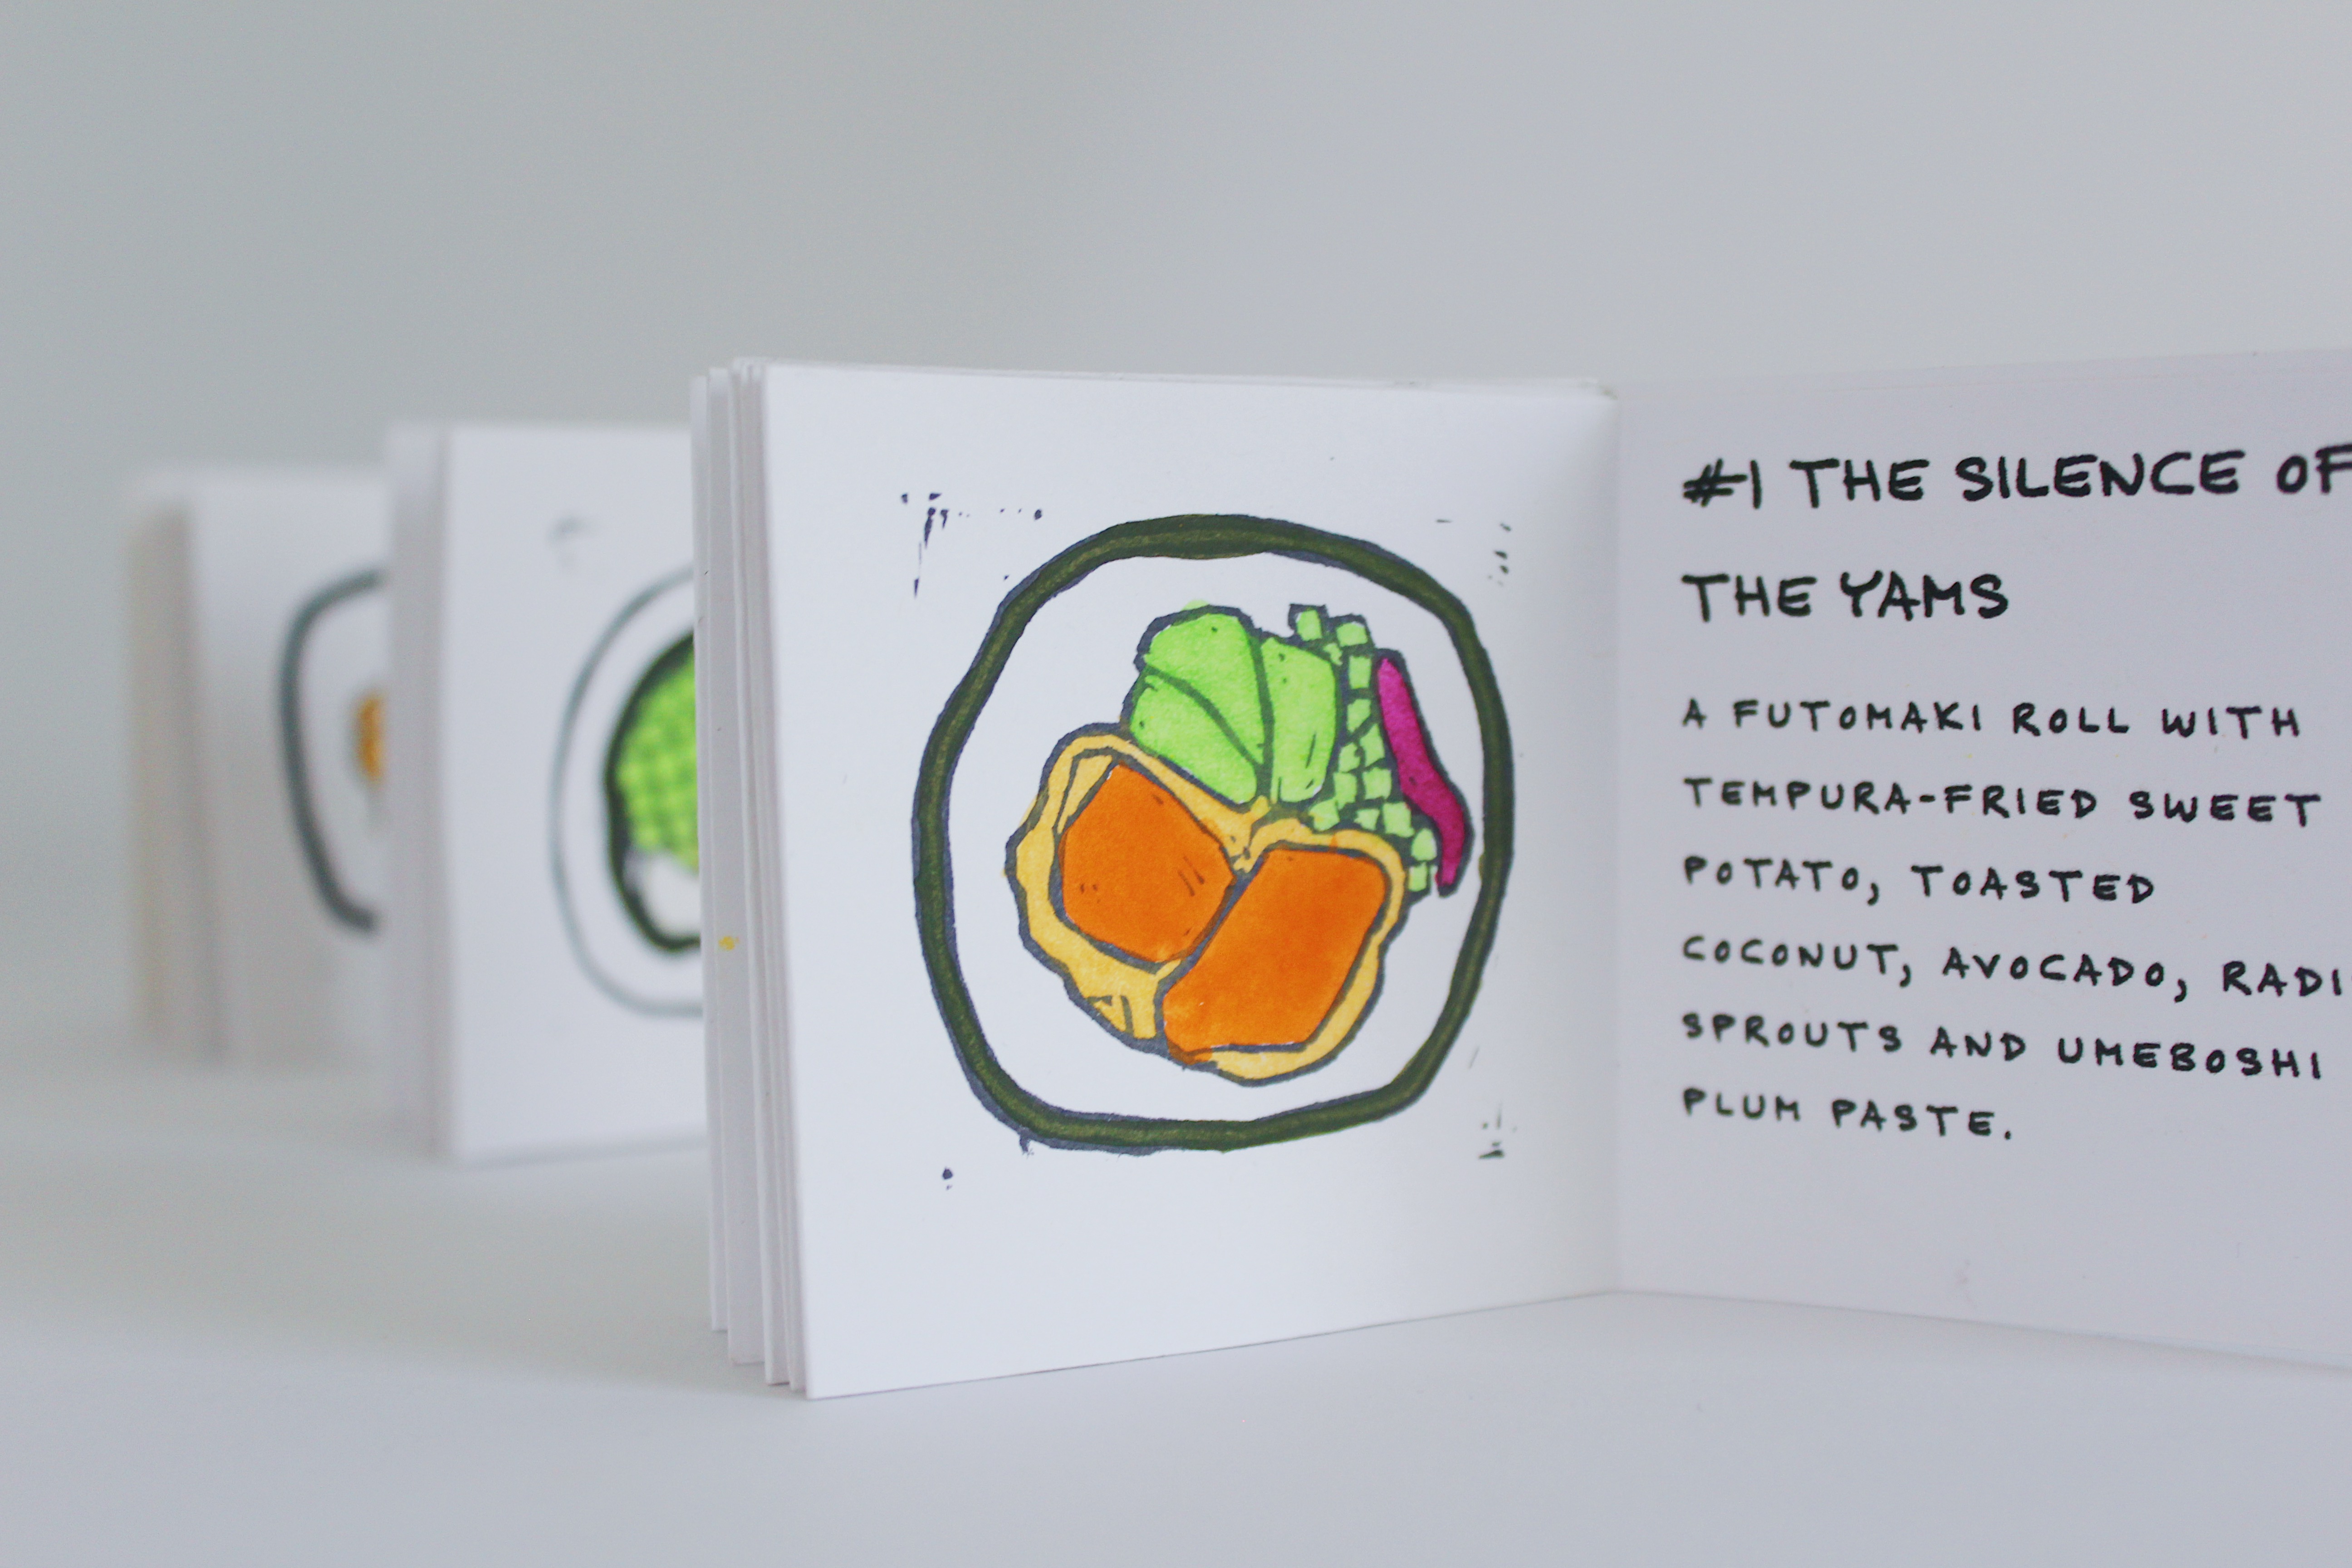 #1 THE SILENCE OF
THE YAMS
A FUTOMAKI ROLL WITH
TEMPURA-FRIED SWEET
POTATO, TOASTED
COCONUT, AVOCADO,
SPROUTS AND UMEBOSHI
PLUM PASTE.